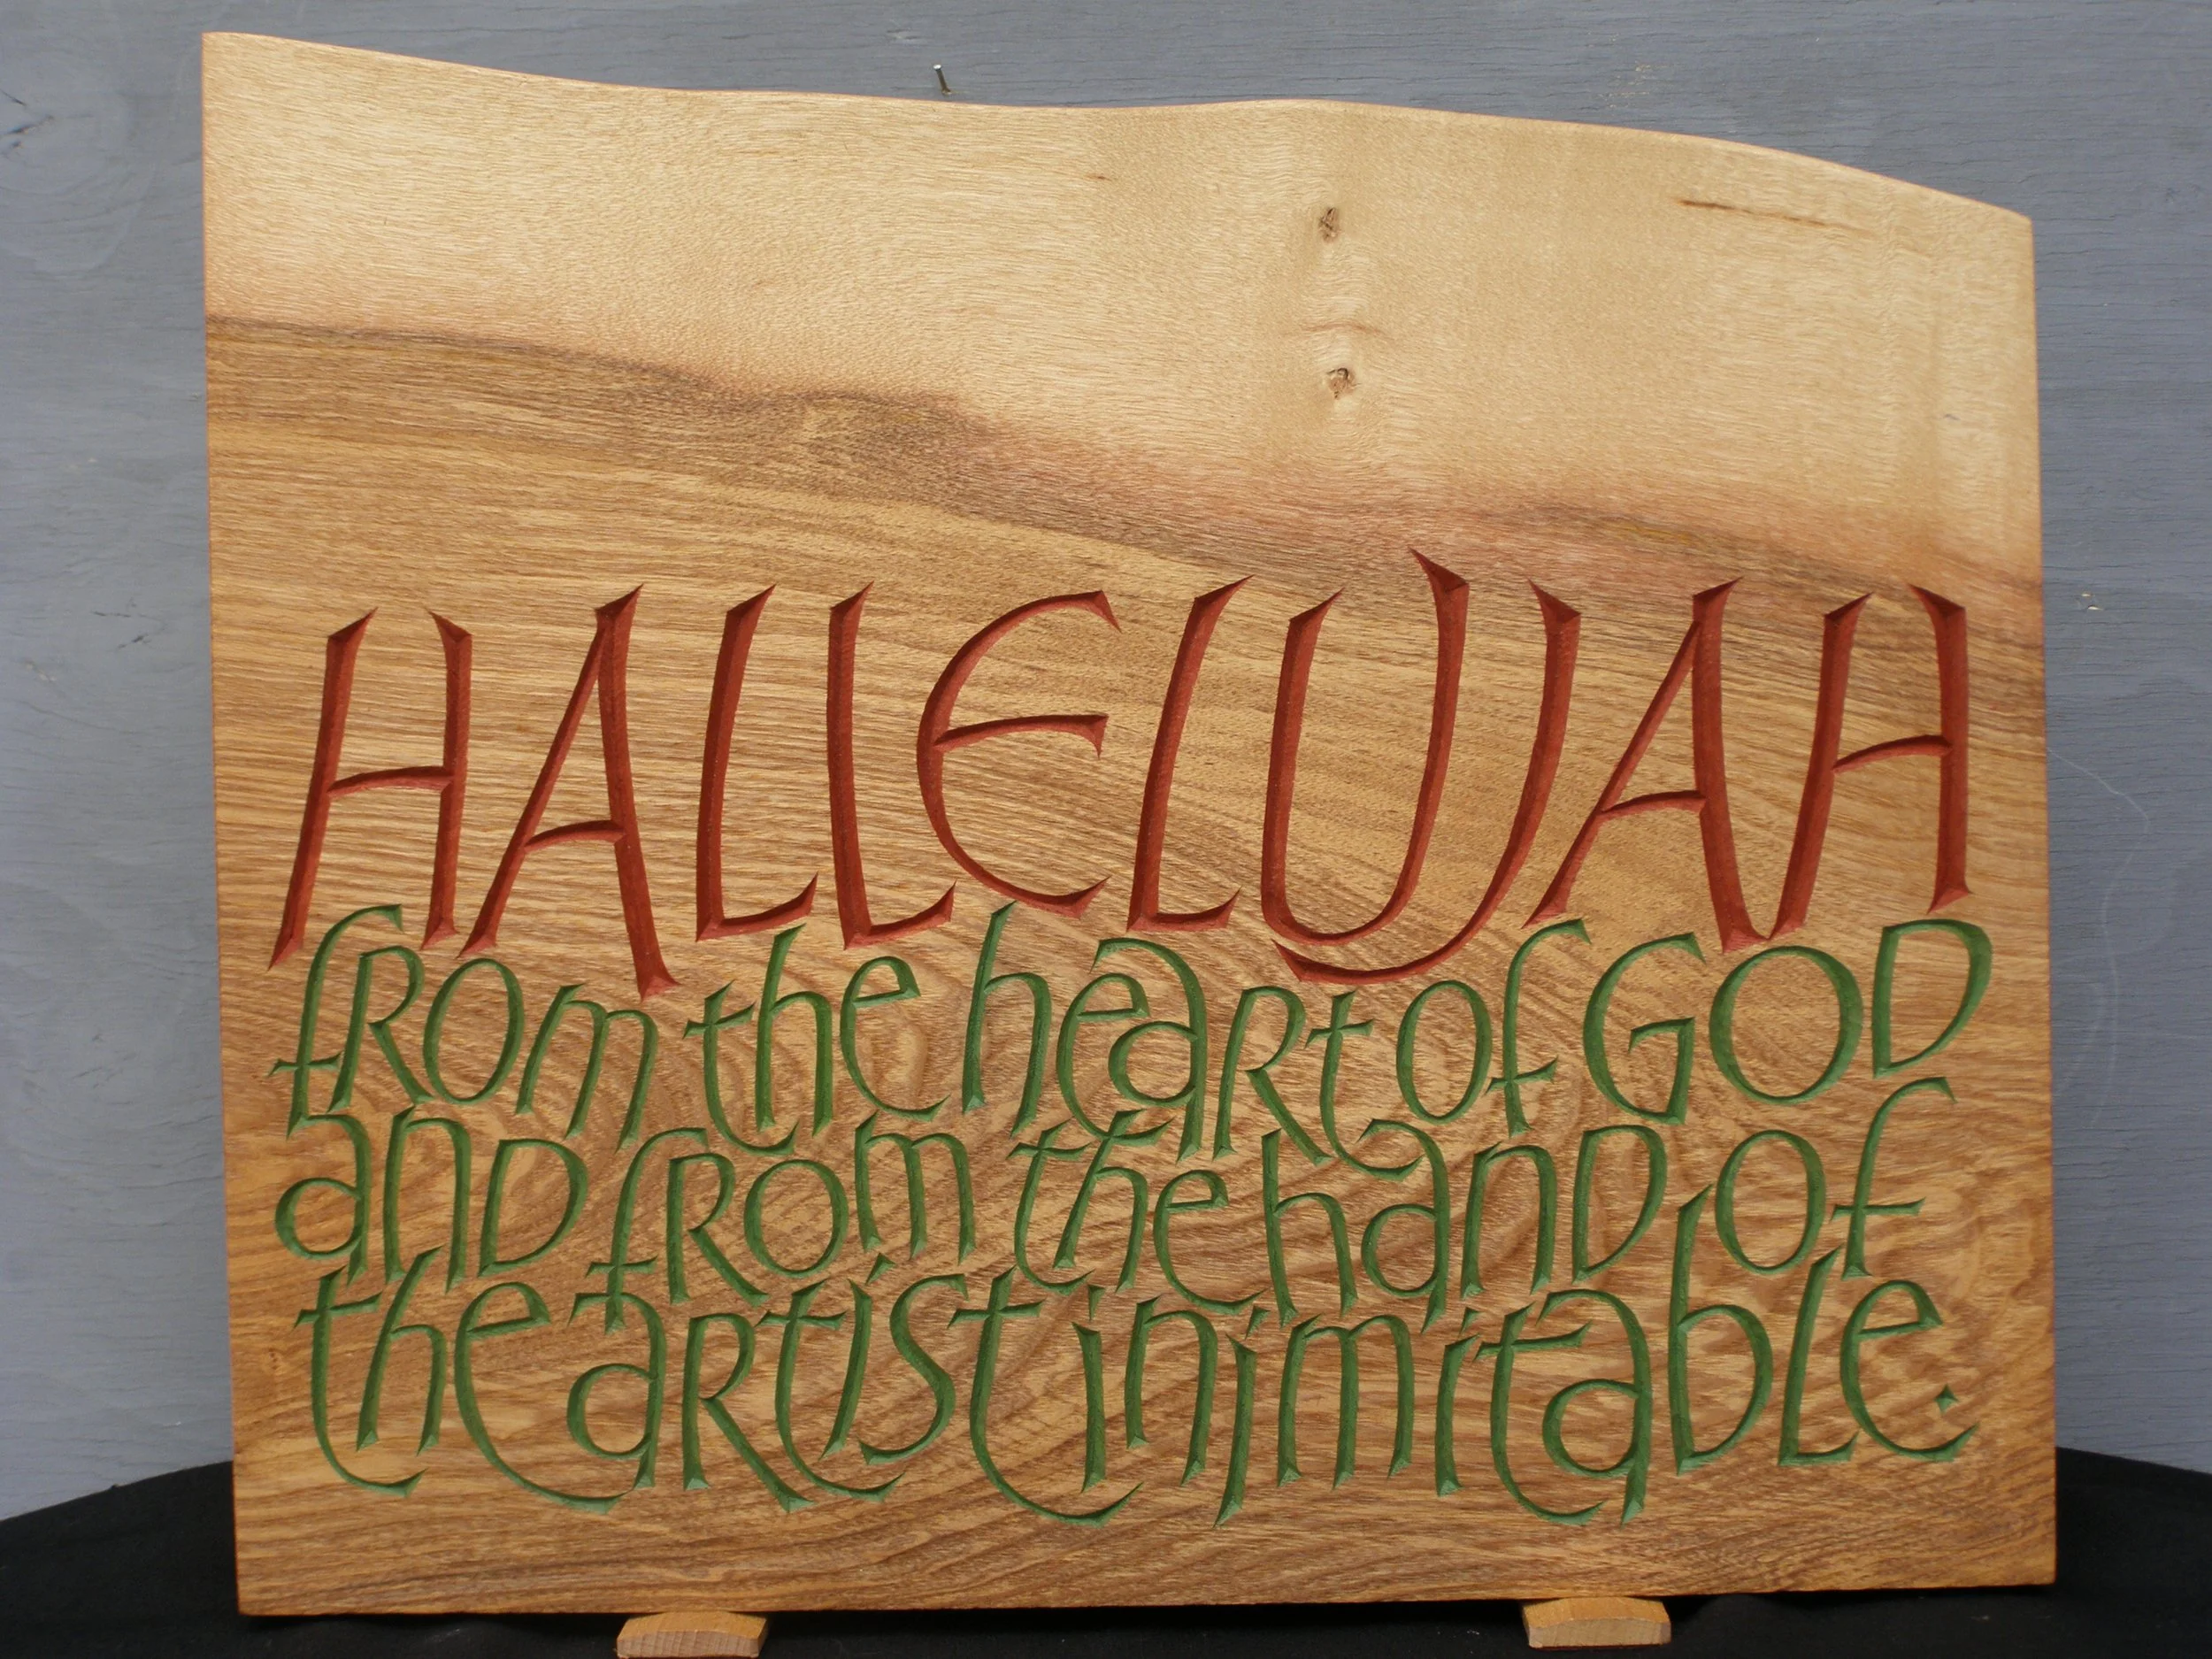 HALLELUJAH
from the heart of GOD
and from the hand of
the artist inimitable.